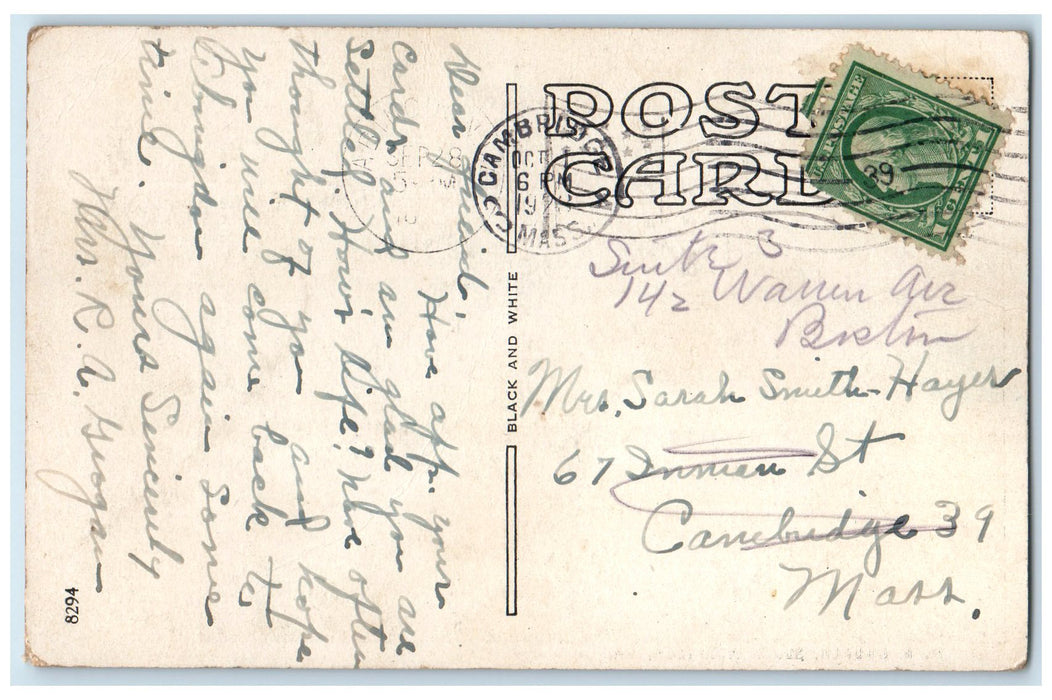 Dear Friend:
Have app. your
Cards and am glad you are
Settled. How's Life? Have often
thought of you and hope
you will come back to
Abingdon again some
time. Yours Sincerely
Mrs. R. A.
POST
CARD
CAMBRIDGE
OCT
6 PM
MASS
SEP 28
39
U.S. POSTAGE
1 CENT 1
BLACK AND WHITE
Suite 3
142 Warren Ave
Boston
Mrs. Sarah Smith-Hayes
67 Inman St
Cambridge 39
Mass.
8294